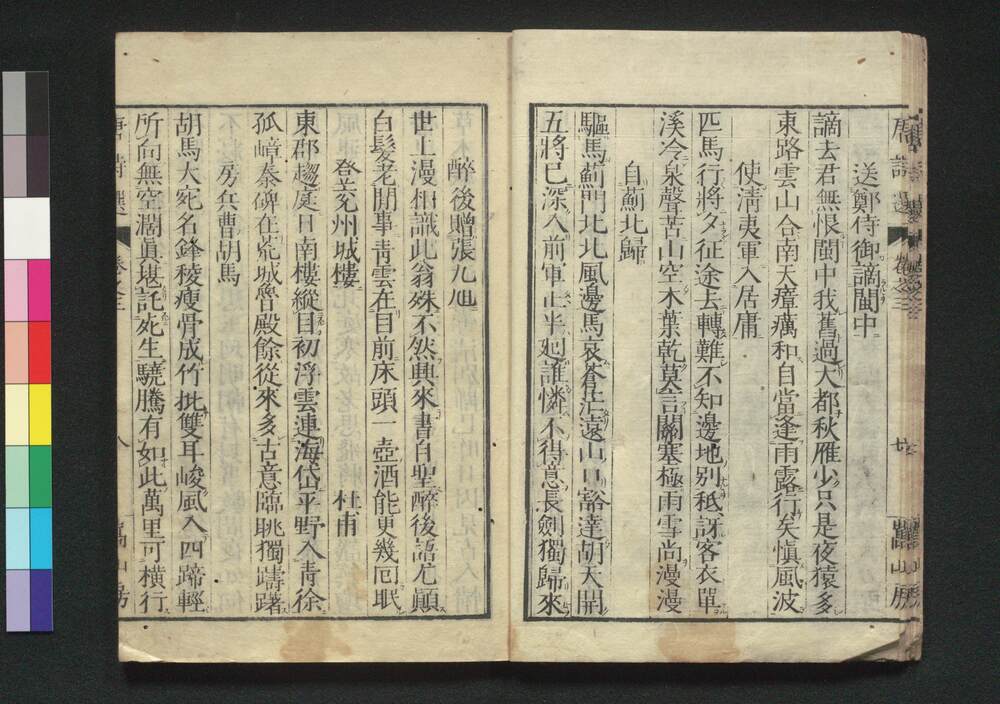 送鄭侍御謫閩中
謫去君無恨閩中我舊過大都秋雁少只是夜猿多
東路雲山合南天瘴癘和自當逢雨露行矣愼風波
使淸夷軍入居庸
匹馬行將夕征途去轉難不知邊地別秪訝客衣單
溪冷泉聲苦山空木葉乾莫言關塞極雨雪尙漫漫
自薊北歸
驅馬薊門北北風邊馬哀蒼茫遠山口豁達胡天開
五將已深入前軍止半廻誰憐不得意長劍獨歸來
醉後贈張九旭
世上漫相識此翁殊不然興來書自聖醉後語尤顚
白髮老閒事靑雲在目前床頭一壺酒能更幾囘眠
登兗州城樓　杜甫
東郡趨庭日南樓縱目初浮雲連海岱平野入靑徐
孤嶂秦碑在荒城魯殿餘從來多古意臨眺獨躊躇
房兵曹胡馬
胡馬大宛名鋒稜瘦骨成竹批雙耳峻風入四蹄輕
所向無空濶眞堪託死生驍騰有如此萬里可橫行
唐詩選　卷之三